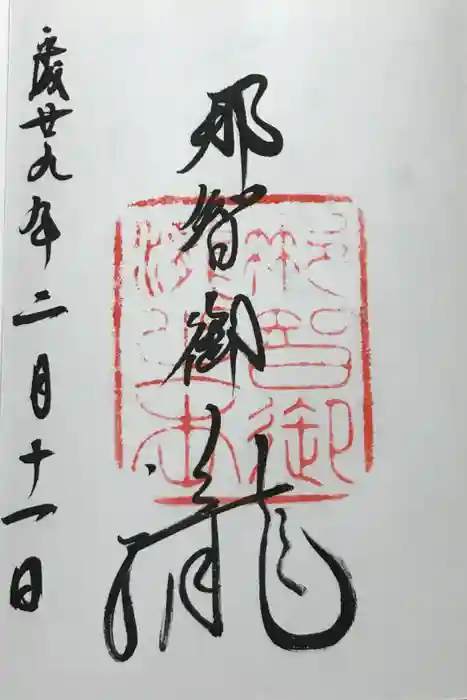 那智御瀧
平成廿九年二月十一日
那智御